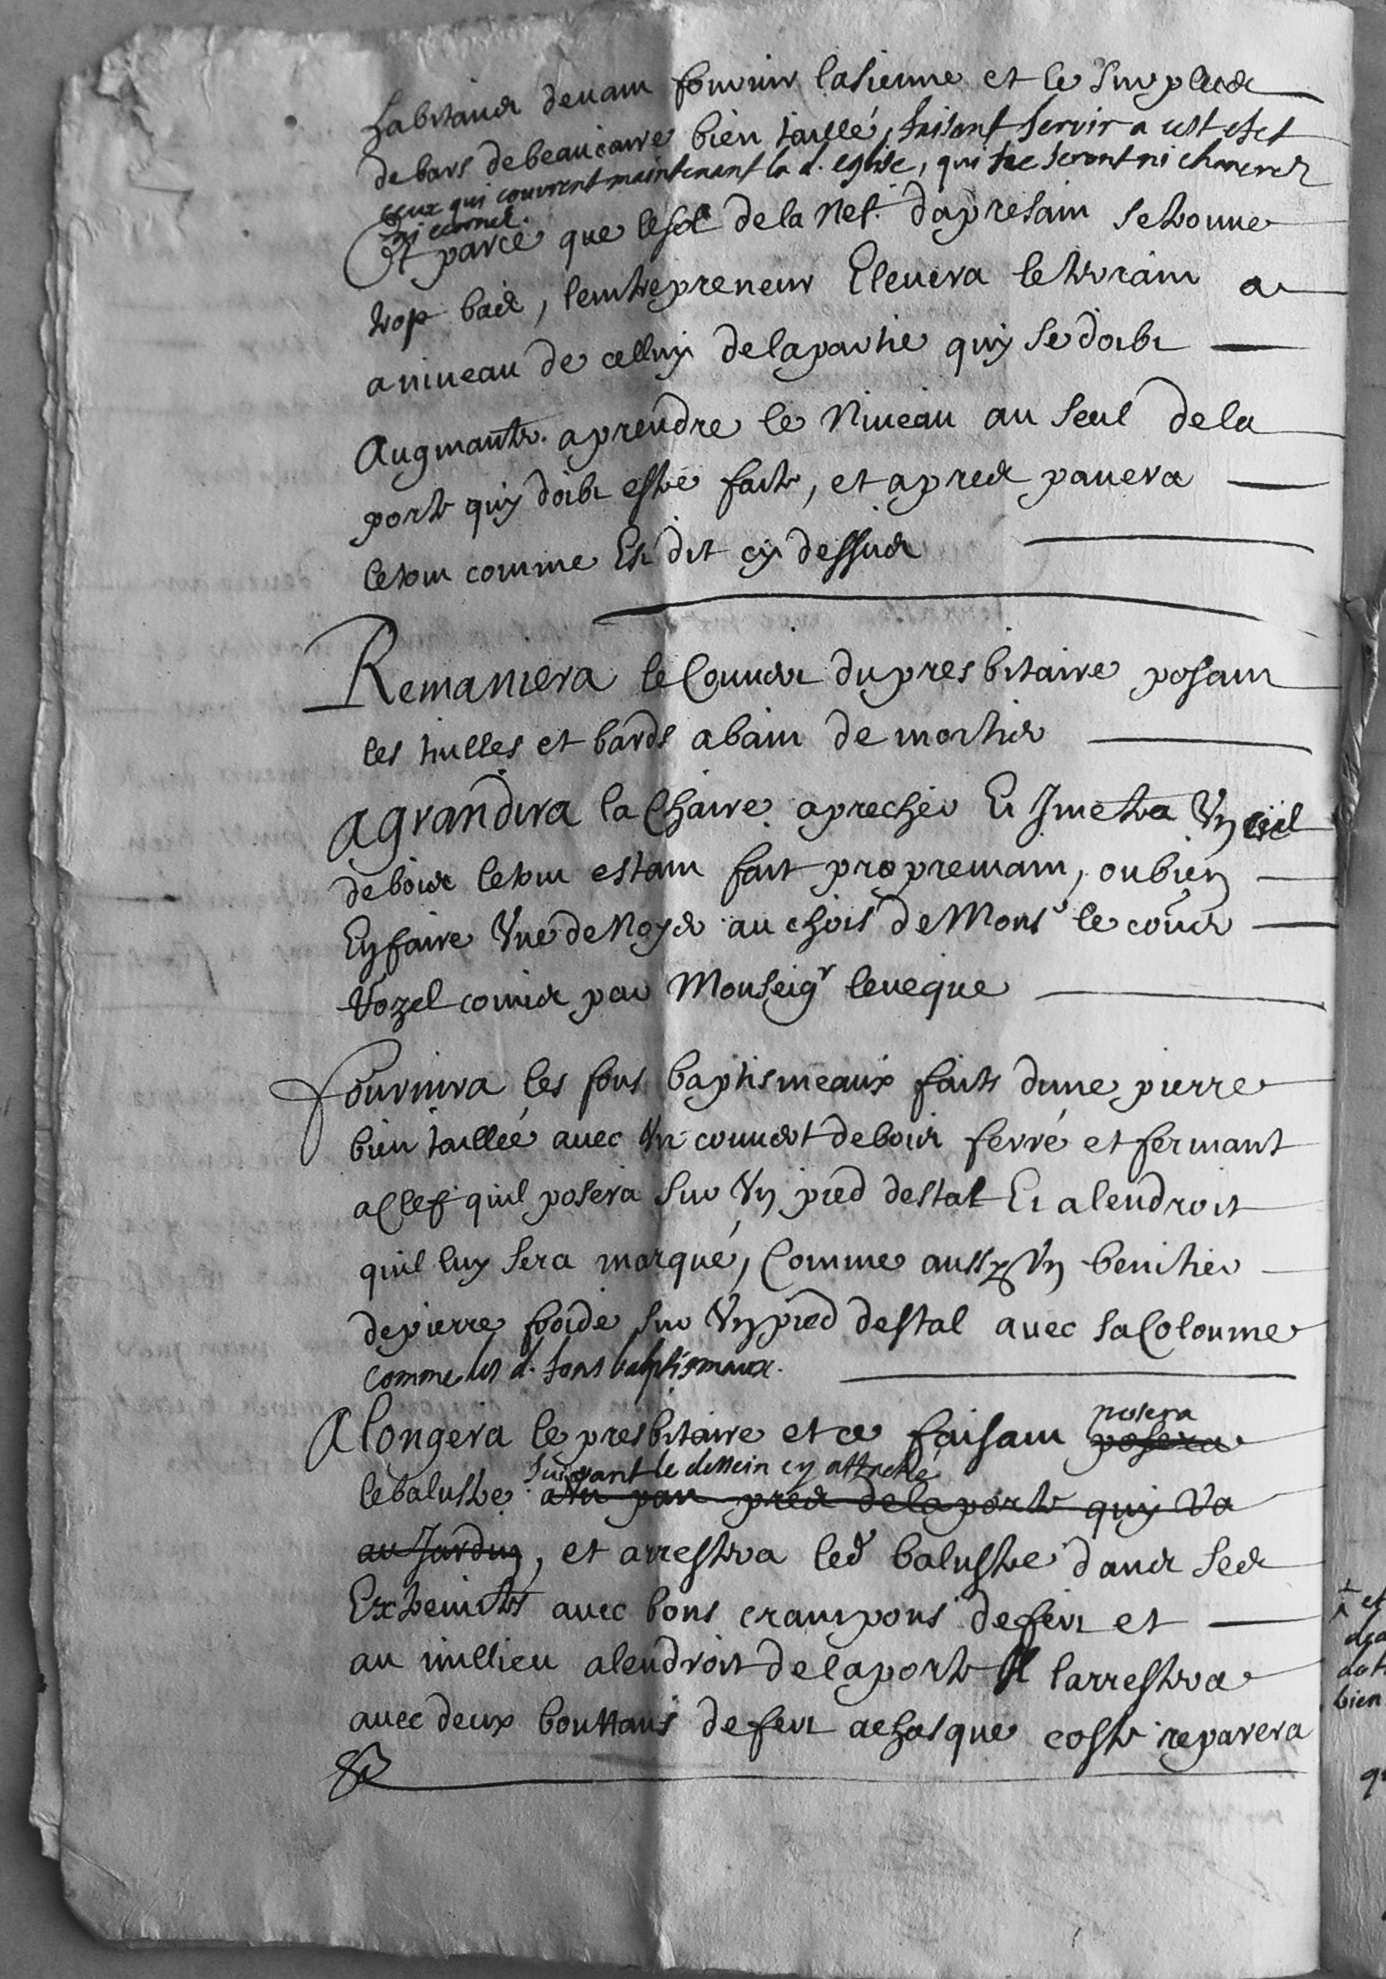 habitans devant fournir la sienne et le surplus
de bars de beaucaire bien taillé, faisant servir a cest efet
ceux qui couvrent maintenant la d. eglise, qui ne seront ni
ni ecornés.
Et parce que le sol de la Nef dapresant se trouve
trop bas, lentrepreneur Elevera le terrain a
a niveau de celluy de la partie quy se doibt
Augmanter aprendre le Niveau au seul de la
porte quy doibt estre faite, et apres pavera
le tout comme Est dit cy dessus
Remaniera le Couvert du presbitaire posant
les tuilles et bards a bain de mortier
Agrandira la Chaire a precher Et Jmetra Un ciel
de bois le tout estant fait proprement, ou bien
En faire Une de Noyer au chois de Monsr le
Vozel comis par Monseigr leveque
Fournira les fons baptismeaux faits dune pierre
bien taillée avec Un couvert de bois ferré et fermant
a Clef quil posera sur Un pied destal Et a lendroit
quil luy sera marqué, Comme aussy Un benitier
de pierre froide sur Un pied destal avec sa Colonne
comme les d. fons baptismaux.
Alongera le presbitaire et ce faisant posera posera
suivant le dessein cy attaché
le balustre a Un pan pres de la porte quy Va
au Jardin, et arrestera led balustre dans ses
Extremites avec bons crampons de fer et
au millieu a lendroit de la porte Il larrestera
avec deux bouttans de fer a chasque coste reparera